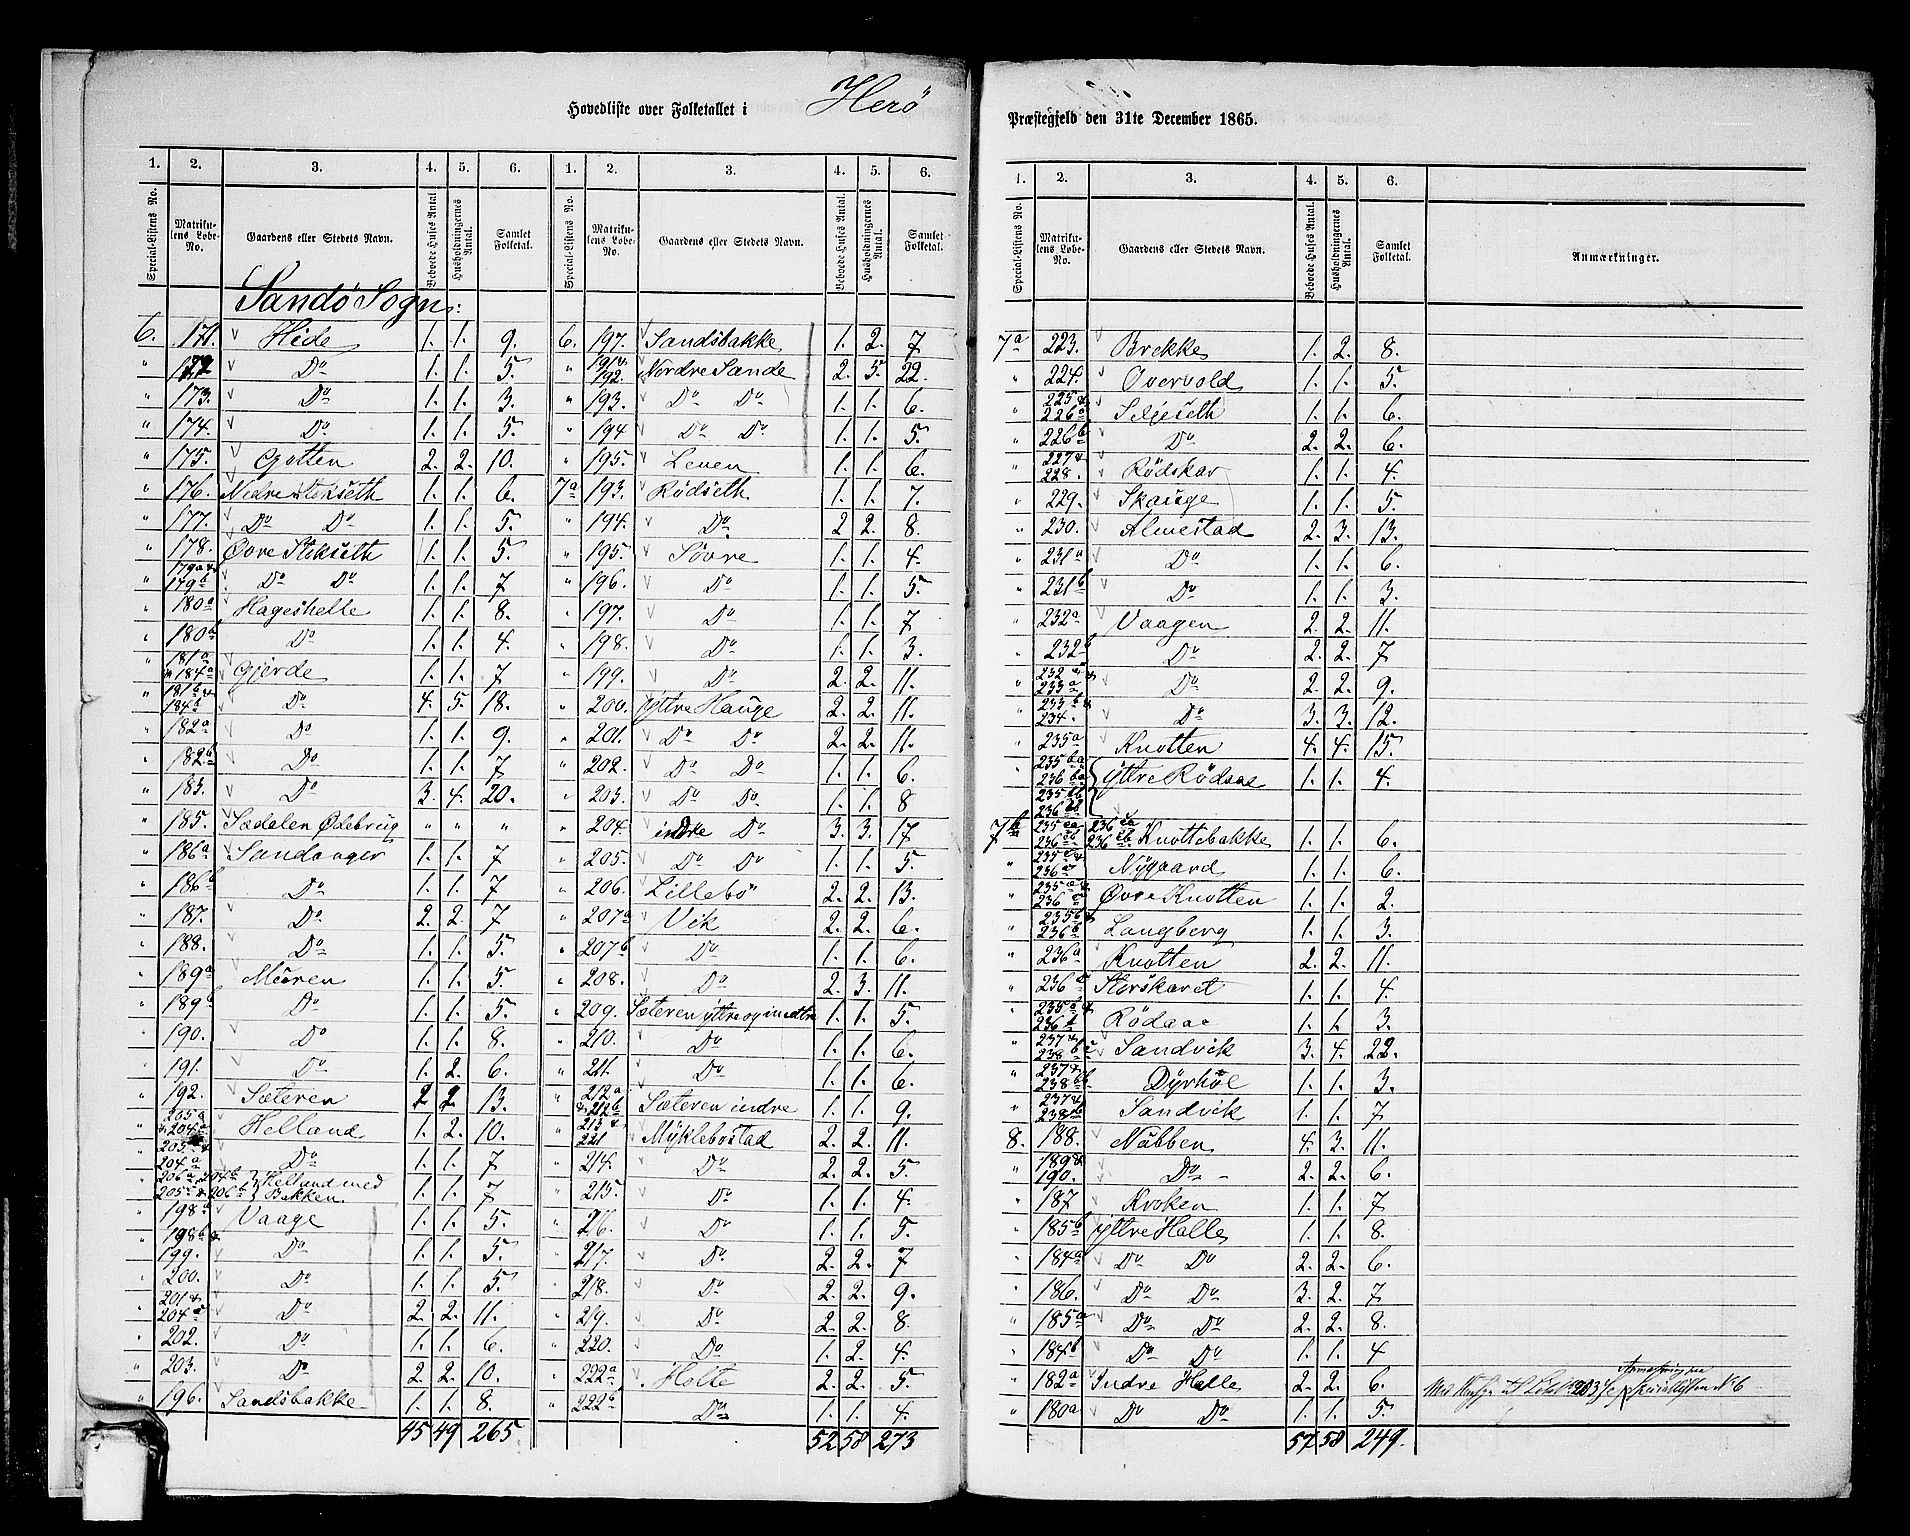 Hovedliste over Folketallet i Herö
Præstegjeld den 31te December 1865.
1. 2. 3. 4. 5. 6. 1. 2. 3. 4. 5. 6.
Special-Listens No. Matrikulens Løbe-No. Gaardens eller Stedets Navn. Beboede Huses Antal. Husholdningernes Antal. Samlet Folketal. Special-Listens No. Matrikulens Løbe-No. Gaardens eller Stedets Navn. Beboede Huses Antal. Husholdningernes Antal. Samlet Folketal.
Sandö Sogn:
6. 171. Hide 1. 1. 9.
" 172 Do 1. 1. 5.
" 173. Do 1. 1. 3.
" 174. Do 1. 1. 5.
" 175. Gjotten 2. 2. 10.
" 176. Nedre Stokseth 1. 1. 6.
" 177. Do Do 1. 1. 5.
" 178. Øvre Stokseth 1. 1. 5.
" 179a & 179b Do Do 1. 1. 7
" 180a Hageshelle 1. 1. 8.
" 180b Do 1. 1. 4.
" 181a & 184a Gjerde 1. 1. 7
" 181b & 184b Do 4. 5. 18.
" 182a Do 1. 1. 9.
" 182b Do 1. 1. 7
" 183. Do 3. 4. 20.
" 185. Sædalen Ødebrug " " "
" 186a Sandanger 1. 1. 7
" 186b Do 1. 1. 7
" 187. Do 2. 2. 7
" 188. Do 1. 1. 5.
" 189a Müren 1. 1. 5.
" 189b Do 1. 1. 5.
" 190. Do 1. 1. 8.
" 191. Do 1. 2. 6.
" 192. Sæteren 2 2. 13.
" 205a & 204a Helland 1. 2. 10.
" 205a & 204a Do 1. 1. 7
" 206a 204b 205a & 206b Helland med Bakken 1. 1. 7
" 198a Vaage 1. 1. 5.
" 198b & 199. Do 1. 1. 5.
" 200. Do 1. 1. 5.
" 201 & 204a Do 2. 2. 11.
" 202. Do 1. 1. 6.
" 203. Do 2. 2. 10.
" 196. Sandsbakke 1. 1. 8.
45 49 265
6. 197. Sandsbakke 1. 2. 7
" 191 & 192. Nordre Sande 2. 5. 22.
" 193. Do Do 1. 1. 6.
" 194 Do Do 1. 1. 5.
" 195. Leven 1. 1. 6.
7a 193. Rödseth 1. 1. 7.
" 194. Do 2 2. 8.
" 195. Sövre 1. 1. 4.
" 196. Do 1. 1. 5.
" 197. Do 1. 1. 7
" 198. Do 1. 1. 3.
" 199. Do 2. 2. 11.
" 200. Yttre Hauge 2. 2. 11.
" 201. Do Do 2. 2. 11.
" 202. Do Do 1. 1. 6.
" 203. Do Do 1. 1. 8
" 204. indre Do 3. 3. 17
" 205. Do Do 1. 1. 5.
" 206. Lillebö 2. 2. 13.
" 207a Vik 2. 2. 6.
" 207b Do 1. 1. 6.
" 208. Do 2. 3. 11.
" 209. Sæteren yttre og inedtre 1. 1. 5.
" 210. Do 1. 1. 6.
" 211. Do 1. 1. 6.
" 212a & 212b Sæteren indre 1. 1. 9.
" 213 & 221 Myklebostad 2. 2. 11.
" 214. Do 2. 2. 5.
" 215. Do 1. 1. 4.
" 216. Do 1. 1. 5.
" 217. Do 2. 2. 7
" 218. Do 2. 2. 9.
" 219. Do 2. 2. 8
" 220. Do 1. 2. 4.
" 222a Holte 2. 2. 5.
" 222b Do 1. 1. 4.
52 58 273
1. 2. 3. 4. 5. 6.
Special-Listens No. Matrikulens Løbe-No. Gaardens eller Stedets Navn. Beboede Huses Antal. Husholdningernes Antal. Samlet Folketal. Anmærkninger.
7a 223. Brekke 1. 2. 8.
" 224. Overvold 1. 1. 5.
" 225 & 226a Seljeseth 1. 1. 6.
" 226b Do 2. 2. 6.
" 227 & 228. Rödskar 1. 1. 4.
" 229. Skauge 1. 1. 5.
" 230. Almestad 2. 3. 13.
" 231a Do 1. 1. 6.
" 231b Do 1. 1. 3.
" 232a Vaagen 2. 2. 11.
" 232b Do 2. 2. 7
" 232 & 233a Do 2. 2. 9.
" 233b & 234. Do 3. 3. 12.
" 235a Knotten 4. 4. 15.
" 235ba 236ba 235bb 236bb Yttre Rödaae 1. 1. 4.
7b 235ca 236ca 236cb 236cb Knottebakke 1. 1. 6.
" 235 & 236 Nygaard 1. 1. 6.
" 235 & 236 Øvre Knotten 1. 1. 2.
" 235b & 236b Langberg 1. 1. 3.
" 236a Knotten 2. 2. 11.
" 236 Storskaret 1. 1. 4.
" 235b & 236 Rödaae 1. 1. 3.
" 237 & 238b Sandvik 3. 4. 22.
" 237 & 238bb Dyrhöl 1. 1. 3.
" 237 & 238b Sandvik 1. 1. 7
8. 188. Nabben 4. 3. 11.
" 189 & 190. Do 2. 2. 6.
" 187 Kroken 1. 1. 7
" 185b Yttre Halle 1. 1. 8.
" 184a Do Do 2. 2. 6.
" 186. Do Do 3. 2. 7
" 185a Do Do 2. 2. 8.
" 184b Do Do 1. 1. 4
" 182a Indre Halle 2. 2. 6.
" 180a Do Do 1. 1. 5.
57 58 249.